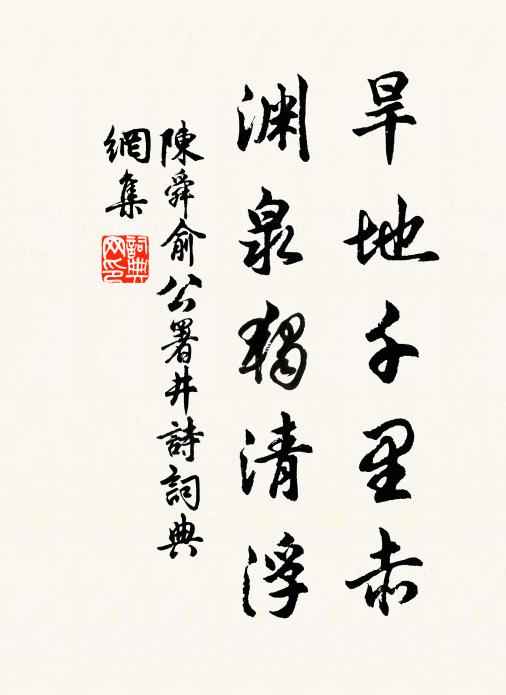 旱地千里赤
渊泉獨清浮
陳舜俞公署井詩詞典
網集
詞典
网印